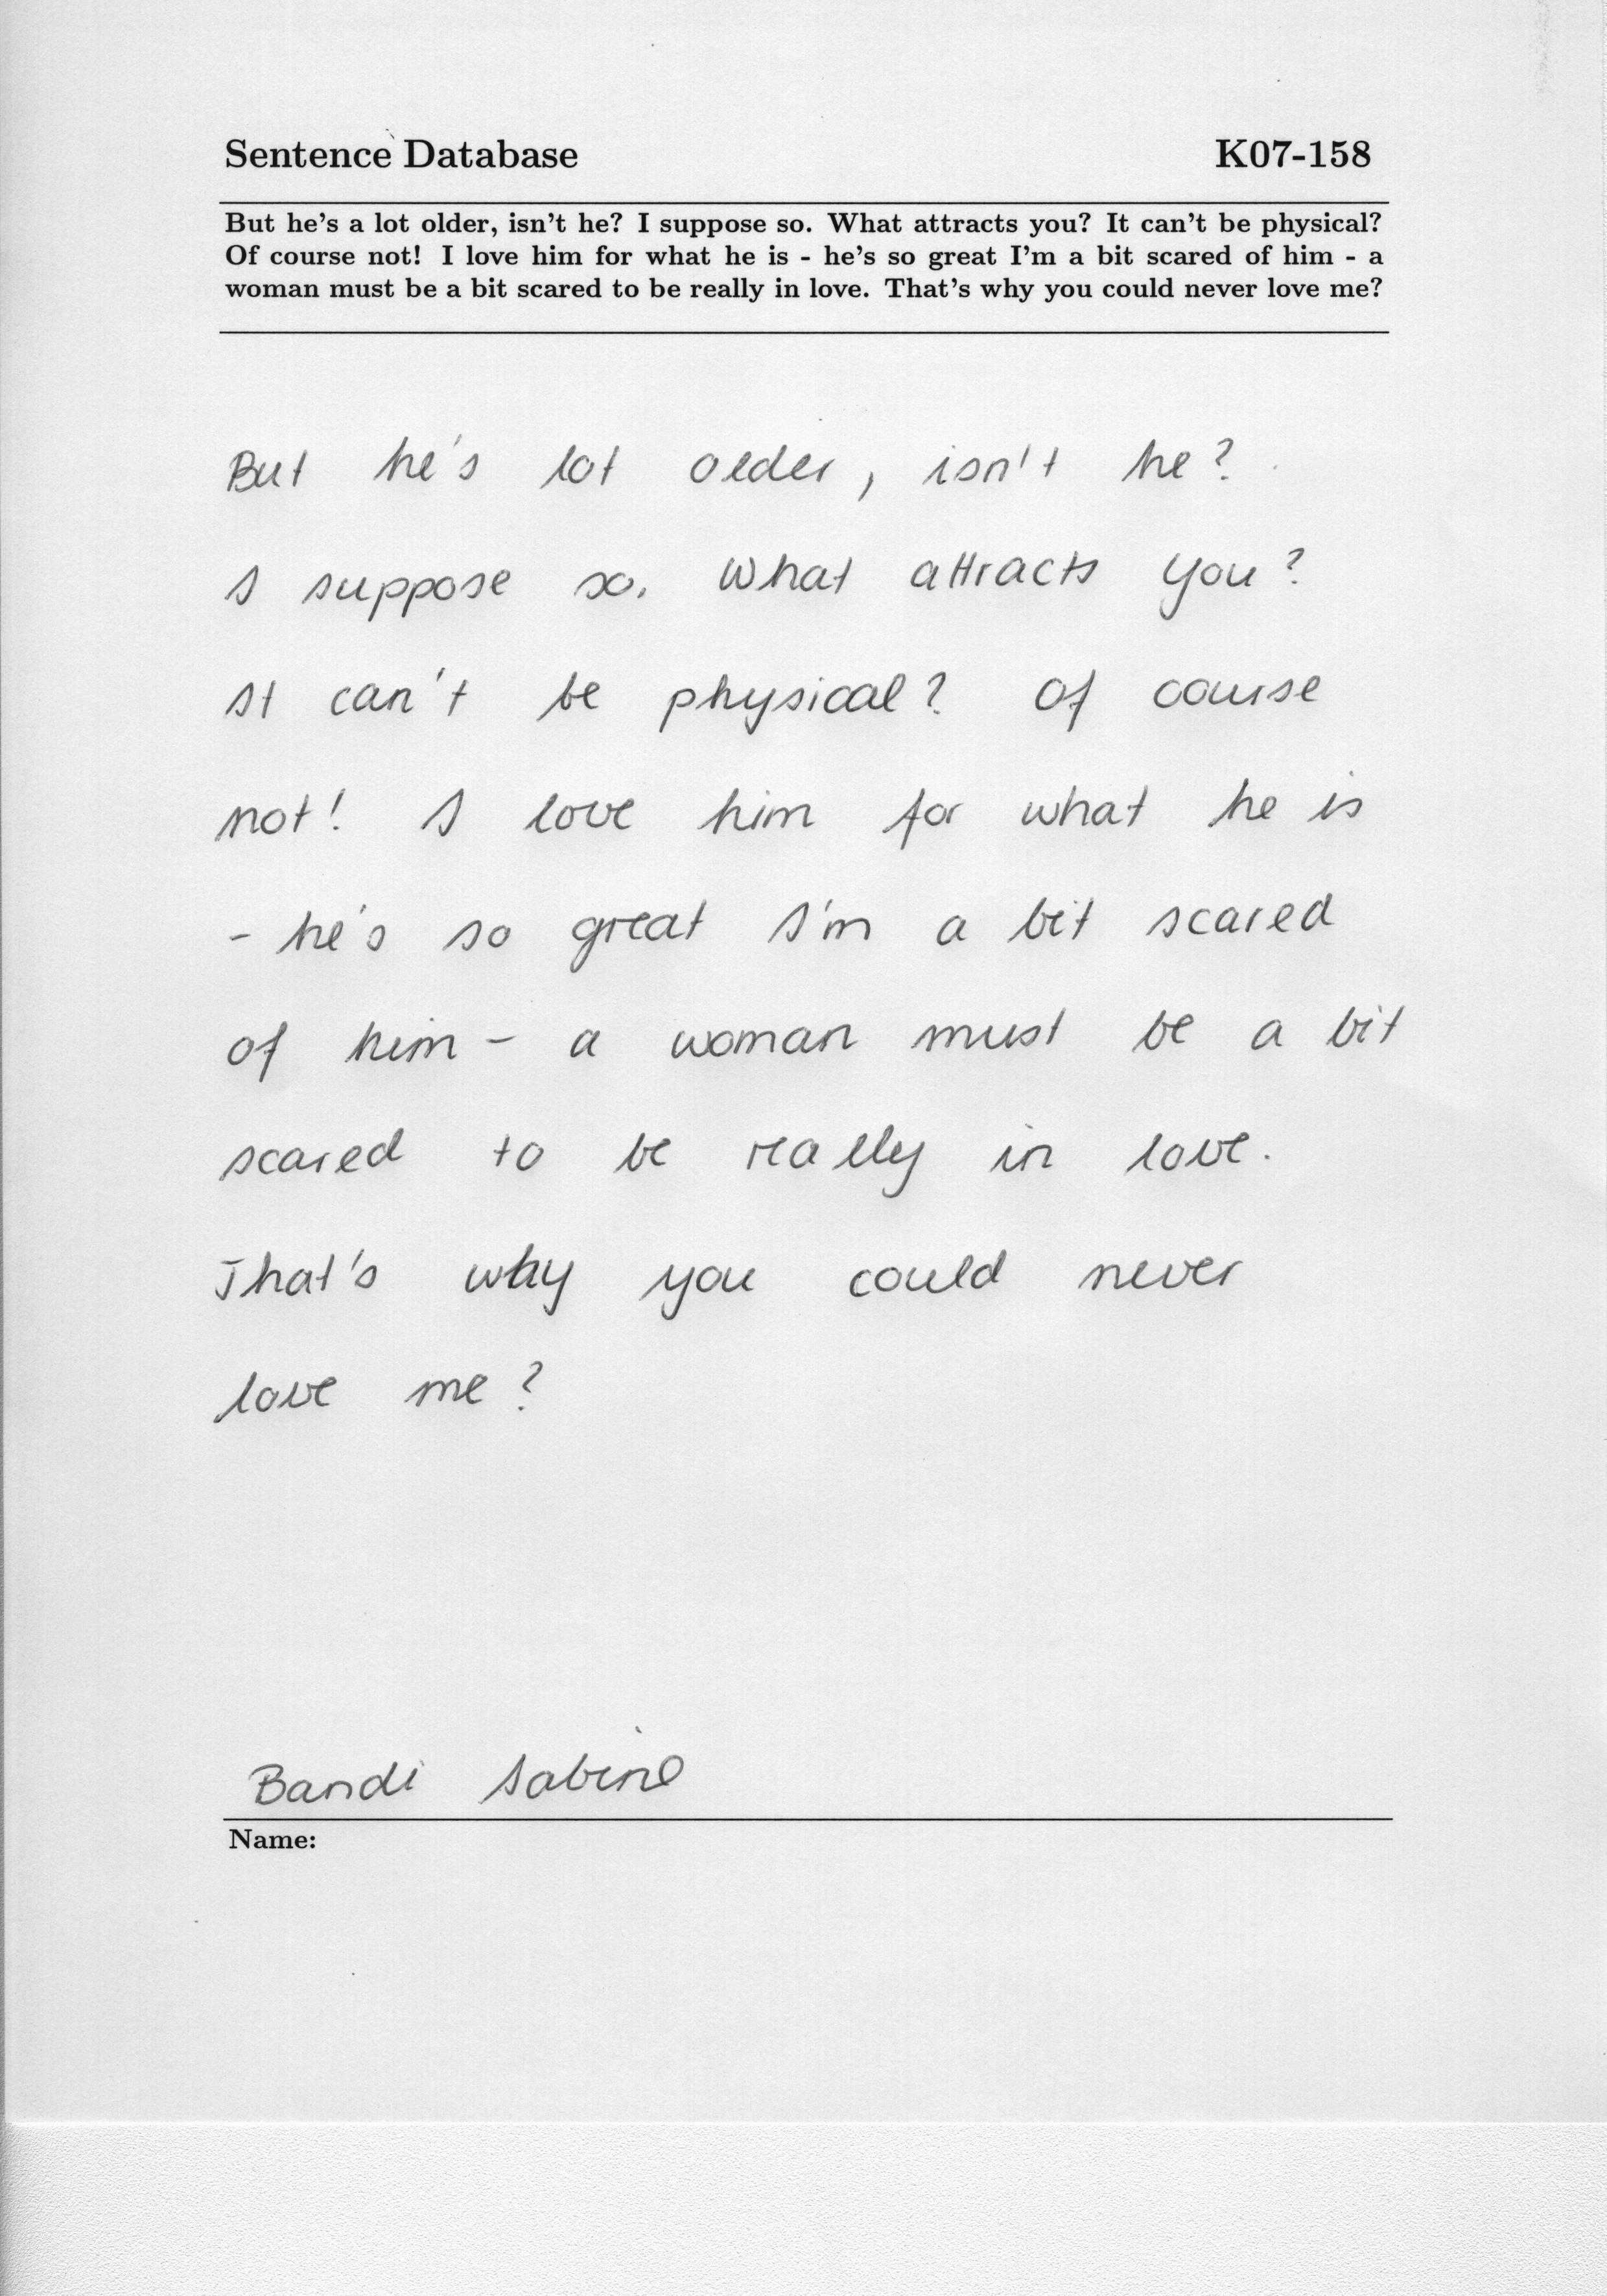 Sentence Database K07-158
But he's a lot older, isn't he? I suppose so. What attracts you? It can't be physical?
Of course not! I love him for what he is - he's so great I'm a bit scared of him - a
woman must be a bit scared to be really in love. That's why you could never love me?
But he's lot older, isn't he?
I suppose so. What attracts you?
It can't be physical? Of course
not! I love him for what he is
- he's so great I'm a bit scared
of him - a woman must be a bit
scared to be really in love.
That's why you could never
love me?
Bandi Sabine
Name: